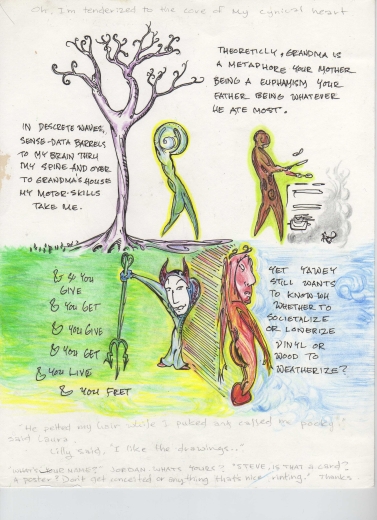 Oh, I'm tenderized to the core of my cynical heart
THEORETICLLY, GRANDMA IS
A METAPHORE YOUR MOTHER
BEING A EUPHAMISM YOUR
FATHER BEING WHATEVER
HE ATE MOST.
IN DESCRETE WAVES,
SENSE-DATA BARRELS
TO MY BRAIN THRU
MY SPINE AND OVER
TO GRANDMA'S HOUSE
MY MOTOR-SKILLS
TAKE ME.
& SO YOU
GIVE
& YOU GET
& YOU GIVE
& YOU GET
& YOU LIVE
& YOU FRET
YET YAWEY
STILL WANTS
TO KNOW
WHETHER TO
SOCIETALIZE
OR LONERIZE
VINYL OR
WOOD TO
WEATHERIZE?
"He petted my hair while I puked and called me
said Laura
Lilly said, "I like the drawings.."
"WHAT'S YOUR NAME?" JORDAN. WHATS YOURS? "STEVE, IS THAT A card?
A poster? Don't get conceited or anything that's nice Thanks